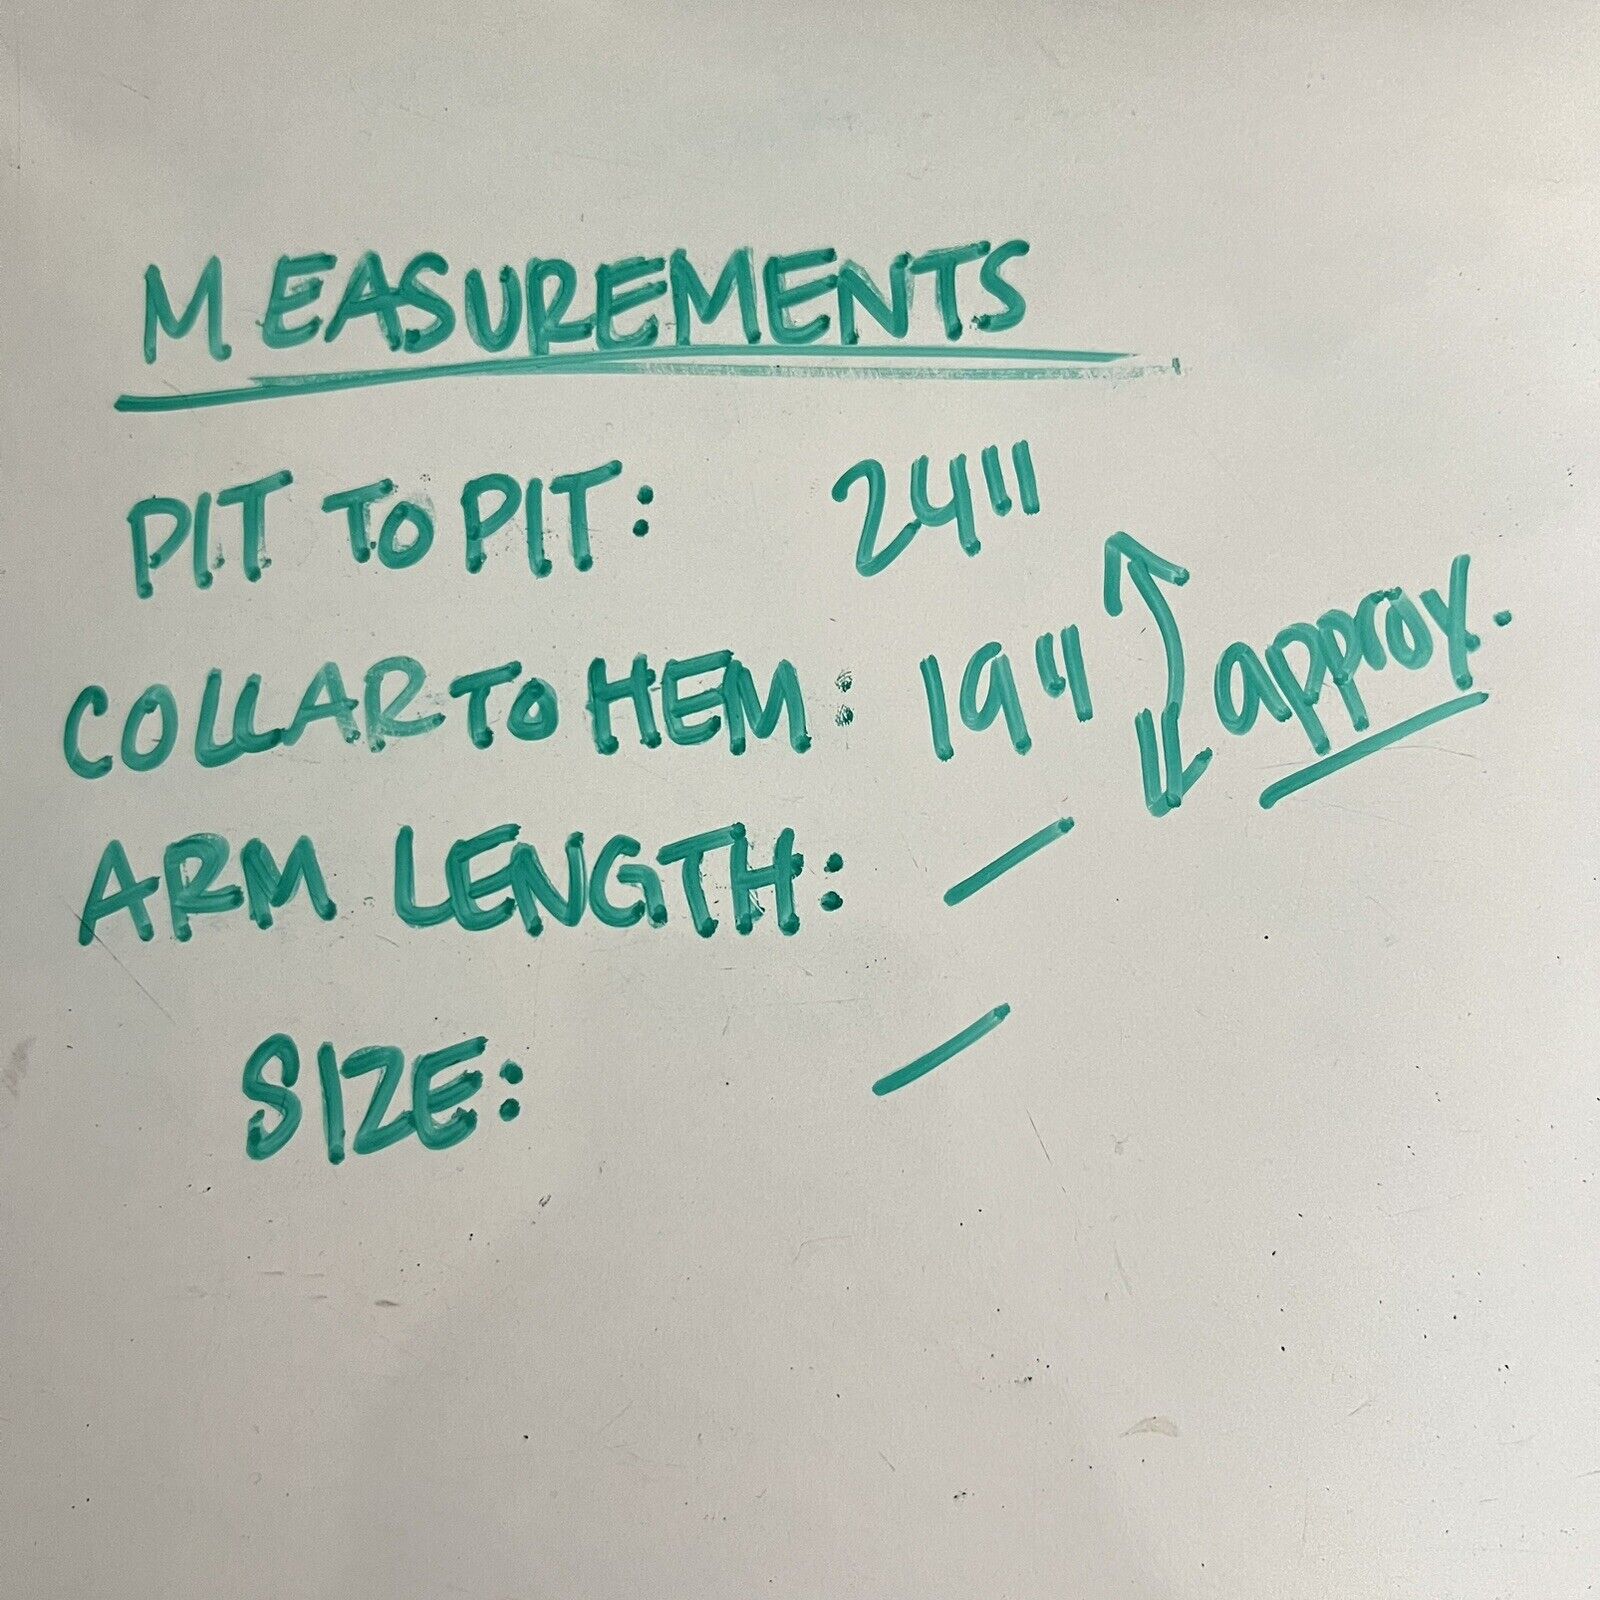 MEASUREMENTS
PIT TO PIT: 24"
COLLAR TO HEM: 19" approx.
ARM LENGTH: —
SIZE: —